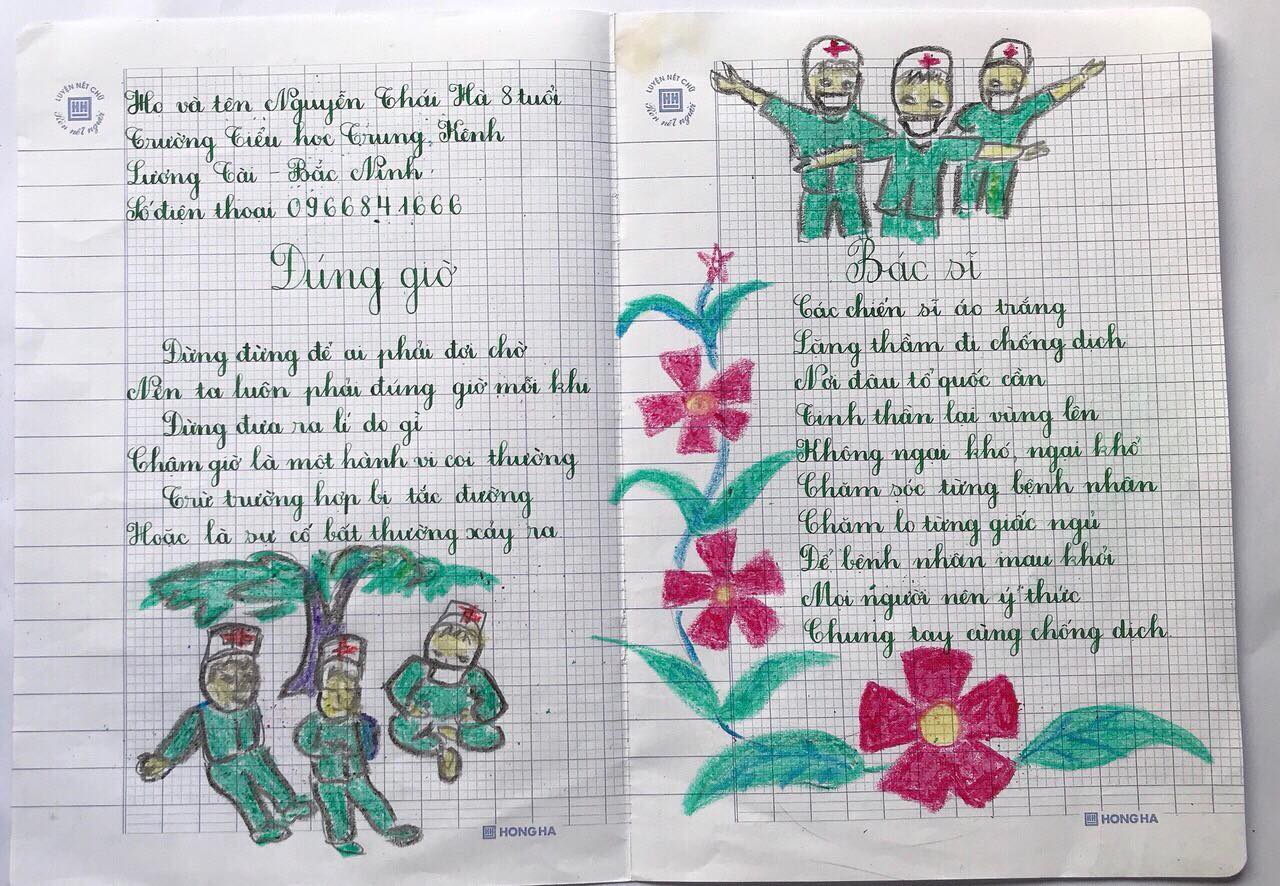 LUYỆN NÉT CHỮ
Rèn nết người
Họ và tên Nguyễn Thái Hà 8 tuổi
Trường Tiểu học Trung Kênh
Lương Tài - Bắc Ninh
Số điện thoại 0966841666
Đúng giờ
Đừng đừng để ai phải đợi chờ
Nên ta luôn phải đúng giờ mỗi khi
Đừng đưa ra lí do gì
Chậm giờ là một hành vi coi thường
Trừ trường hợp bị tắc đường
Hoặc là sự cố bất thường xảy ra
HH HONG HA
LUYỆN NÉT CHỮ
Rèn nết người
Bác sĩ
Các chiến sĩ áo trắng
Lặng thầm đi chống dịch
Nơi đâu tổ quốc cần
Tinh thần lại vùng lên
Không ngại khó, ngại khổ
Chăm sóc từng bệnh nhân
Chăm lo từng giấc ngủ
Để bệnh nhân mau khỏi
Mọi người nên ý thức
Chung tay cùng chống dịch
HH HONG HA